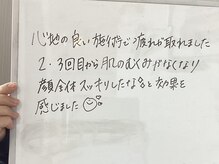 心地の良い施術で疲れが取れました
2・3回目から肌のむくみがなくなり
顔全体スッキリしたなぁと効果を
感じました